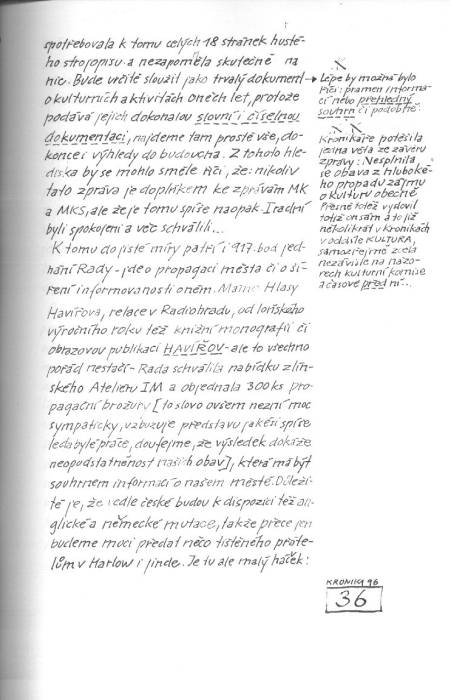 spotřebovala k tomu celých 18 stránek husté-
ho strojopisu a nezapomněla skutečně na
nic. Bude určitě sloužit jako trvalý dokument
o kulturních aktivitách oněch let, protože
podává jejich dokonalou slovní i číselnou
dokumentaci, najdeme tam prostě vše, do-
konce i výhledy do budoucna. Z toho hle-
diska by se mohlo směle říci, že: nikoliv
tato zpráva je doplňkem ke zprávám MK
a MKS, ale že je tomu spíše naopak. I radní
byli spokojeni a věc schválili...
K tomu do jisté míry patří i 917. bod jed-
nání Rady - jde o propagaci města či o ší-
ření informovanosti o něm. Máme Hlasy
Havířova, relace v Radiohradu, od loňského
výročního roku též knižní monografii či
obrazovou publikaci HAVÍŘOV - ale to všechno
pořád nestačí - Rada schválila nabídku zlín-
ského Atelieru IM a objednala 300 ks pro-
pagační brožury [to slovo ovšem nezní moc
sympaticky, vzbuzuje představu jakési spíše
ledabylé práce, doufejme, že výsledek dokáže
neopodstatněnost našich obav], která má být
souhrnem informací o našem městě. Důleži-
té je, že vedle české budou k dispozici též an-
glické a německé mutace, takže přece jen
budeme moci předat něco tištěného přáte-
lům v Harlow i jinde. Je tu ale malý háček:
Lépe by možná bylo
říci: pramen informa-
cí nebo přehledný
souhrn či podobně.
Kronikáře potěšila
jedna věta ze závěru
zprávy: Nesplnila
se obava z hluboké-
ho propadu zájmu
o kulturu obecně.
Přesně totéž vyslovil
totiž on sám a to již
několikrát v kronikách
v oddíle KULTURA,
samozřejmě zcela
nezávisle na názo-
rech kulturní komise
a časově před ní...
KRONIKA 96
36